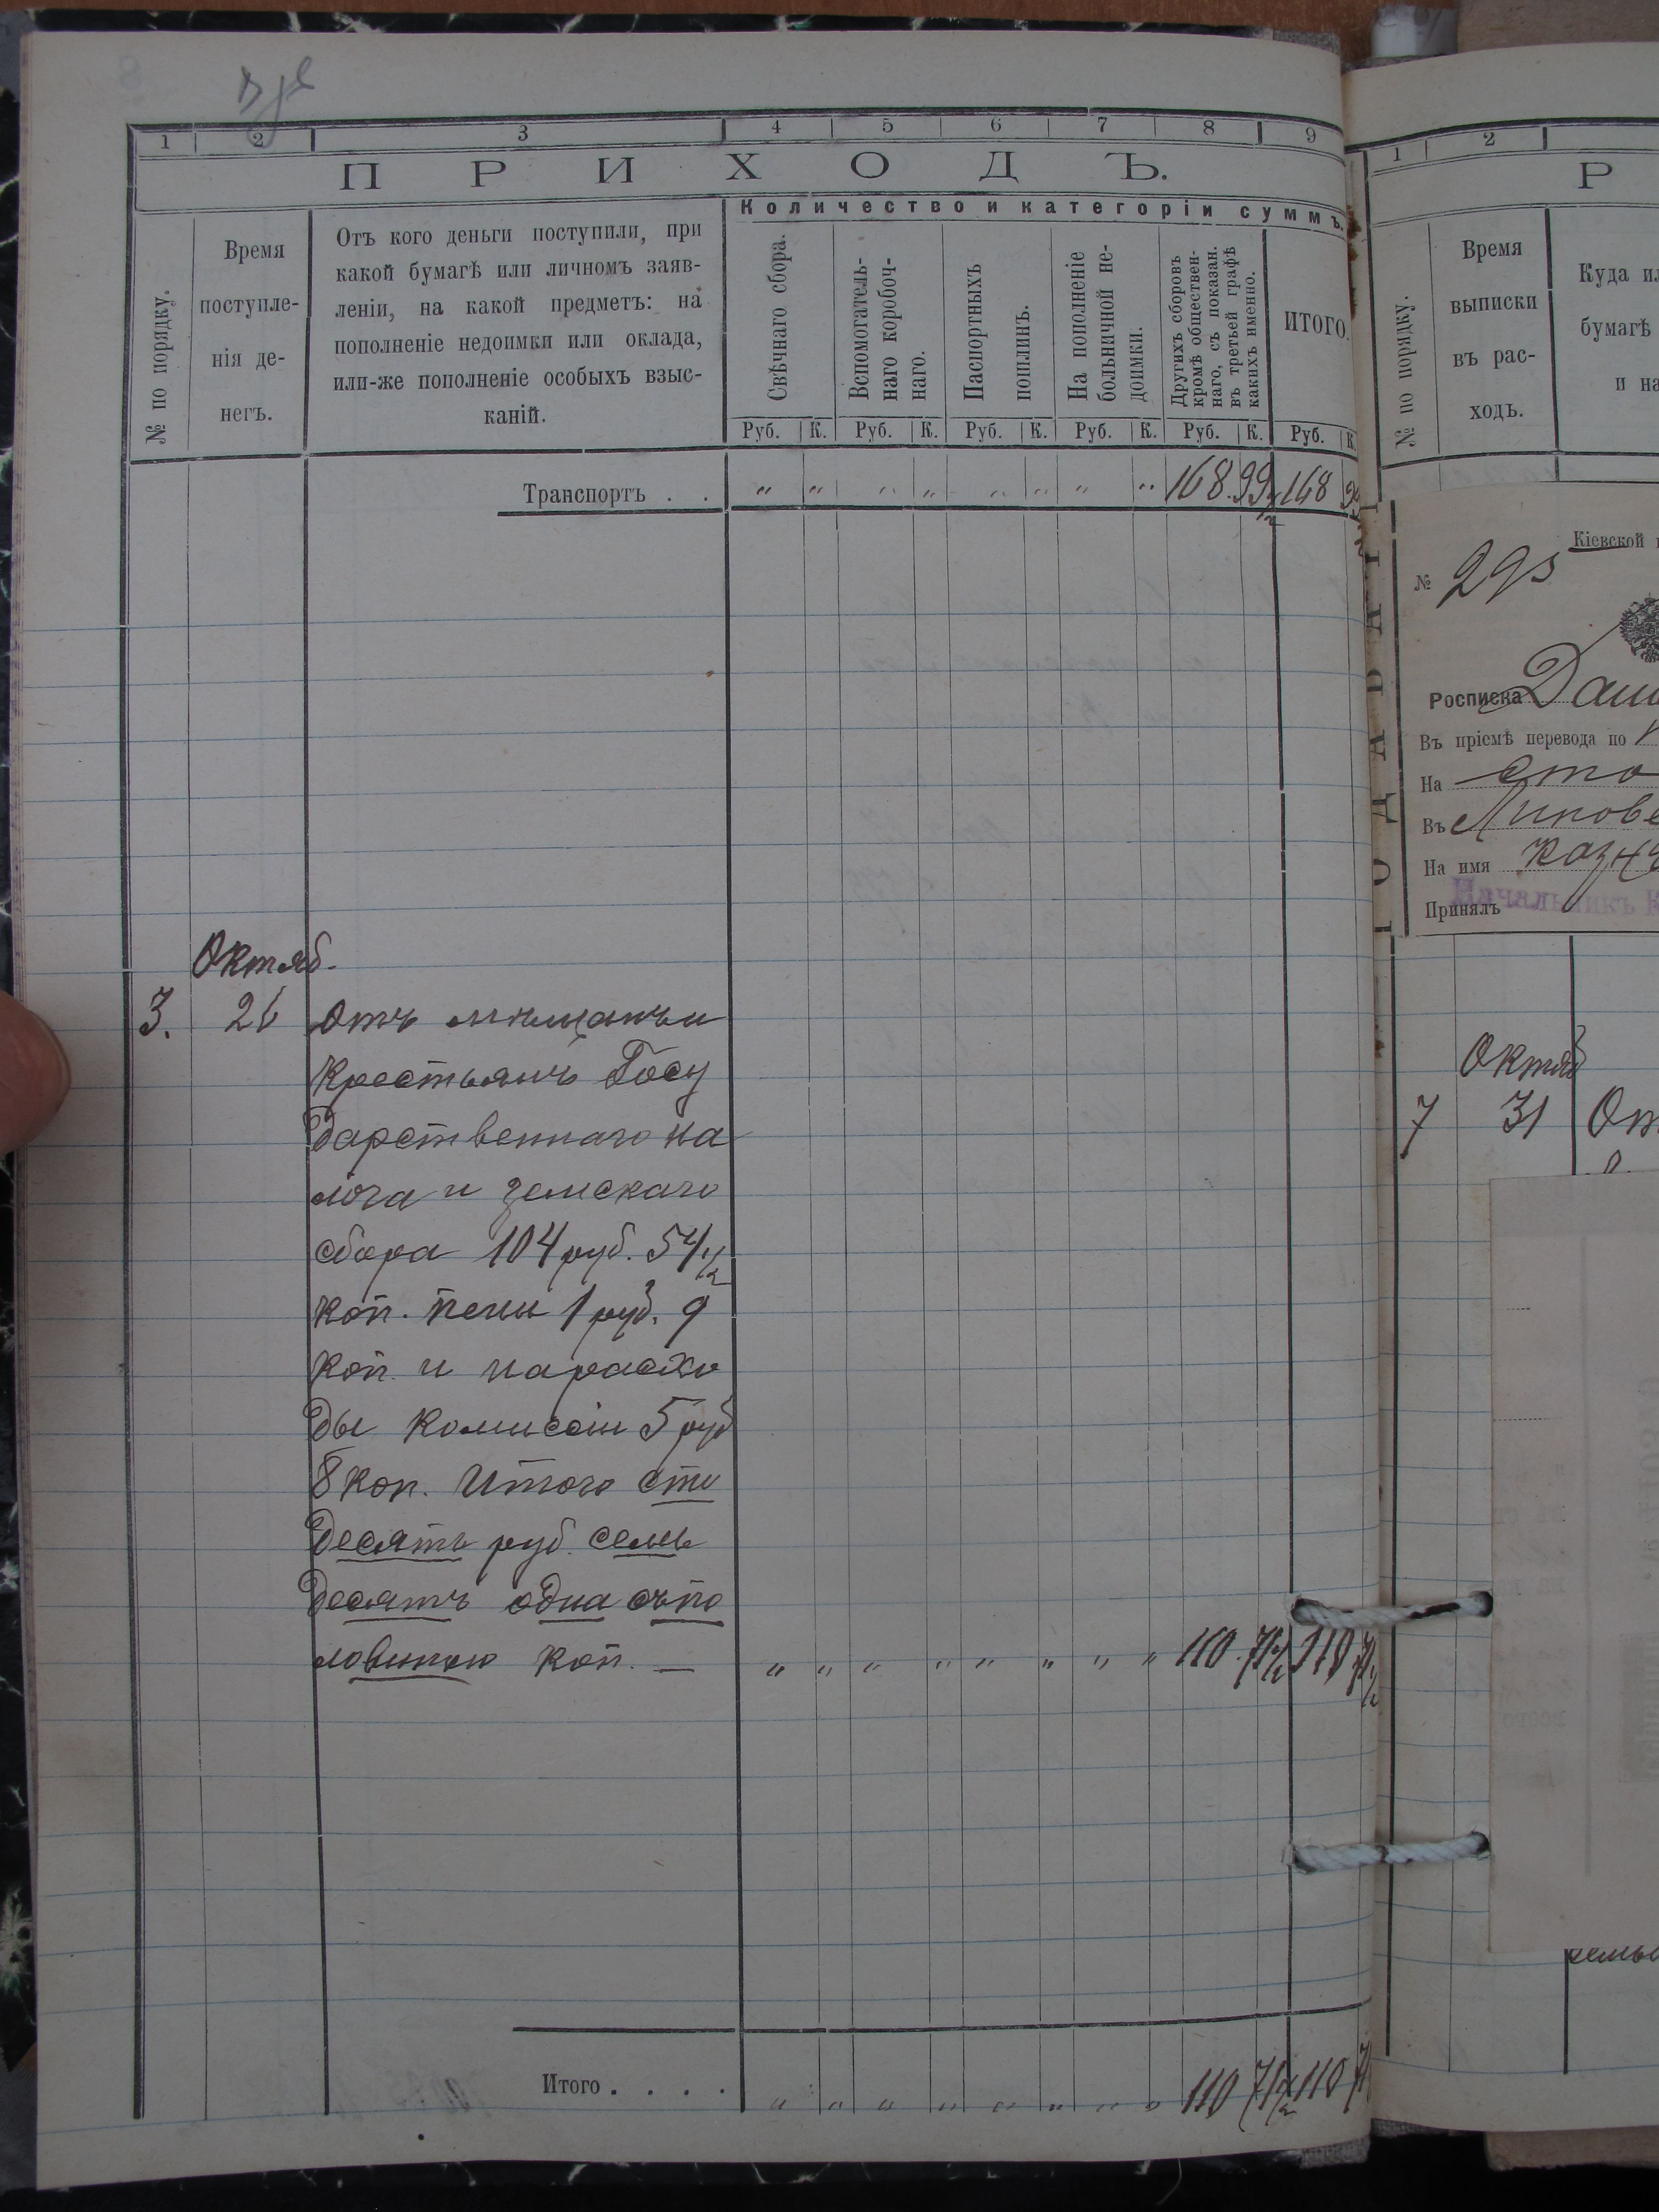 1 2 3 4 5 6 7 8 9
ПРИХОДЪ.
Количество и категоріи суммъ.
№ по порядку.
Время
поступле-
нія де-
негъ.
Отъ кого деньги поступили, при
какой бумагѣ или личномъ заяв-
леніи, на какой предметъ: на
пополненіе недоимки или оклада,
или-же пополненіе особыхъ взыс-
каній.
Свѣчнаго сбора.
Вспомогатель-
наго коробоч-
наго.
Паспортныхъ
пошлинъ.
На пополненіе
больничной не-
доимки.
Другихъ сборовъ
кромѣ обществен-
наго, съ показан.
въ третьей графѣ
какихъ именно.
ИТОГО.
Руб. К. Руб. К. Руб. К. Руб. К. Руб. К. Руб. К
Транспортъ . . " " " " " " " " 168 99 1/2 168
Октяб.
3. 26 Отъ мѣщанъ и
крестьянъ Госу
дарственнаго на
лога и земскаго
сбора 104 руб. 54 1/2
коп. пени 1 руб. 9
коп. и на расхо
ды Комиссіи 5 руб
8 коп. Итого сто
десять руб. семь
десятъ одна съ по
ловиною коп. — " " " " " " " " 110 71 1/2 110 71 1/2
Итого . . . . " " " " " " " " 110 71 1/2 110 71
1 2
Р
№ по порядку.
Время
выписки
въ рас-
ходъ.
Куда ил
бумагѣ
и на
Кіевской
№ 295
Росписка Даш
Въ пріемѣ перевода по
На сто
Въ Липове
На имя Казнч
Принялъ
Начальникъ К
Октяб
7 31 От